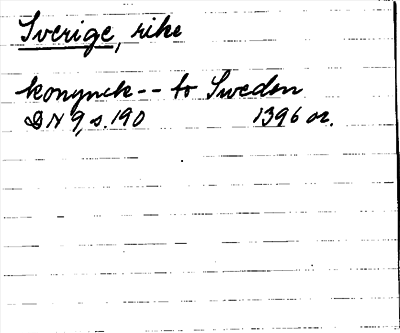 Sverige, rike
konynck -- to Sweden
DN 9, s. 190 1396 or.